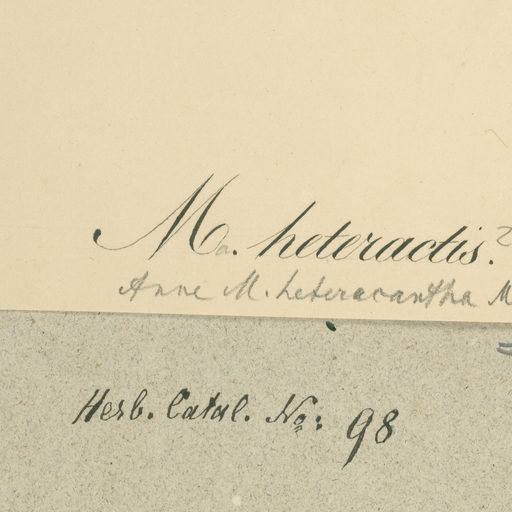 Ma. heteractis. 2
Anne M. heteracantha M
Herb. Catal. No: 98